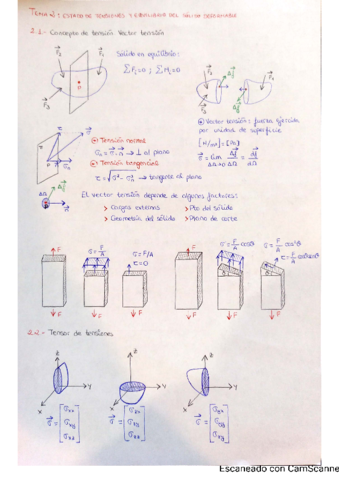 TEMA 2: ESTADO DE TENSIONES Y EQUILIBRIO DEL SÓLIDO DEFORMABLE
2.1- Concepto de tensión. Vector tensión
Sólido en equilibrio:
ΣFi=0 ; ΣMi=0
Vector tensión: fuerza ejercida
por unidad de superficie
[N/m²] = [Pa]
Tensión normal
σn = σ⃗·n⃗ → ⊥ al plano
Tensión tangencial
τ = √(σ² - σn²) → tangente al plano
El vector tensión depende de algunos factores:
> Cargas externas > Pto del sólido
> Geometría del sólido > Plano de corte
σ = F/A
σ = F/A
τ = 0
σ = F/A cosθ
σ = F/A cos²θ
τ = F/A cosθ senθ
F F F F F F
2.2- Tensor de tensiones
Z Z Z
Y Y Y
X X X
Escaneado con CamScanne